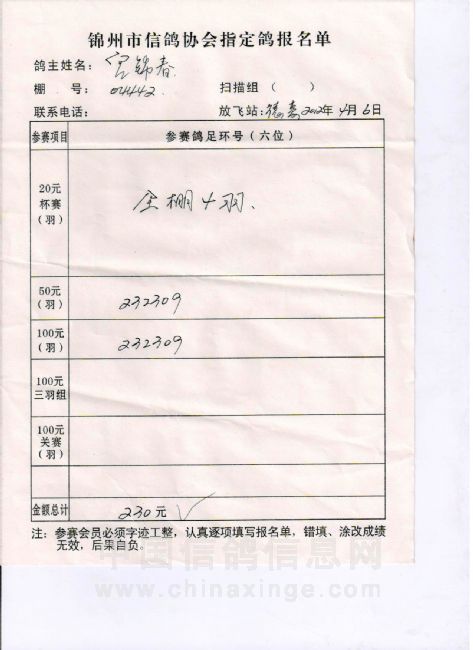 锦州市信鸽协会指定鸽报名单
鸽主姓名：宫锦春
棚 号：04442 扫描组（ ）
联系电话： 放飞站：德惠 2012年4月6日
参赛项目 参赛鸽足环号（六位）
20元
杯赛
（羽）
全棚4羽、
50元
（羽）
232309
100元
（羽）
232309
100元
三羽组
100元
关赛
（羽）
金额总计 230元 √
注：参赛会员必须字迹工整，认真逐项填写报名单，错填、涂改成绩
无效，后果自负。
中国信鸽信息网
www.chinaxinge.com